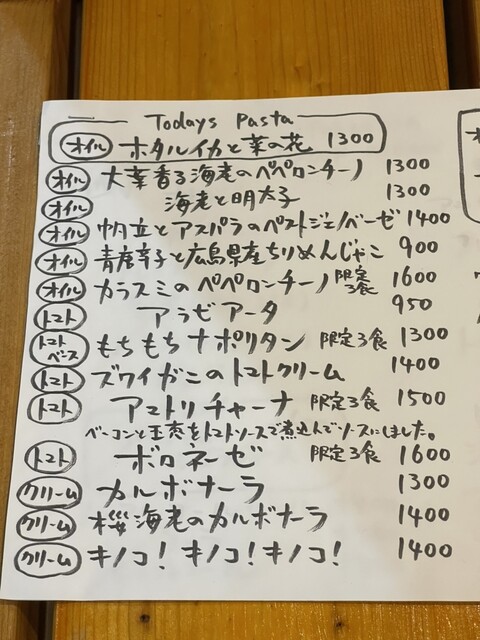 Todays Pasta
オイル ホタルイカと菜の花 1300
オイル 大葉香る海老のペペロンチーノ 1300
オイル 海老と明太子 1300
オイル 帆立とアスパラのペストジェノベーゼ 1400
オイル 青唐辛子と広島県産ちりめんじゃこ 900
オイル カラスミのペペロンチーノ 限定3食 1600
トマト アラビアータ 950
トマトベース もちもちナポリタン 限定3食 1300
トマト ズワイガニのトマトクリーム 1400
トマト アマトリチャーナ 限定3食 1500
ベーコンと玉葱をトマトソースで煮込んでソースにしました。
トマト ボロネーゼ 限定3食 1600
クリーム カルボナーラ 1300
クリーム 桜海老のカルボナーラ 1400
クリーム キノコ!キノコ!キノコ! 1400